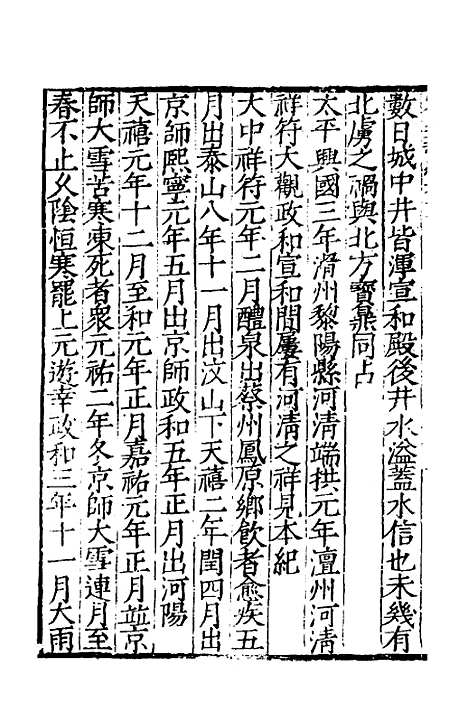 數日城中井皆渾宣和殿後井水溢蓋水信也未幾有
北虜之禍與北方寶鼎同占
太平興國三年滑州黎陽縣河清端拱元年澶州河清
祥符大觀政和宣和間屢有河清之祥見本紀
大中祥符元年二月醴泉出蔡州鳳原鄉飲者愈疾五
月出泰山八年十一月出汶山下天禧二年閏四月出
京師熙寧元年五月出京師政和五年正月出河陽
天禧元年十二月至和元年正月嘉祐元年正月並京
師大雪苦寒凍死者衆元祐二年冬京師大雪連月至
春不止久陰恒寒罷上元遊幸政和三年十一月大雨